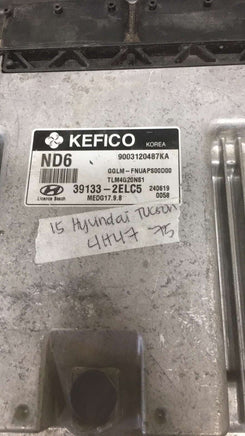 KEFICO
ND6
9003120487KA
KOREA
GGLM-FNUAPS00D00
TLM4G20NS1
39133-2ELC5
240619
0058
Licence Bosch
MEDG17.9.8
15 Hyundai Tucson
4H47